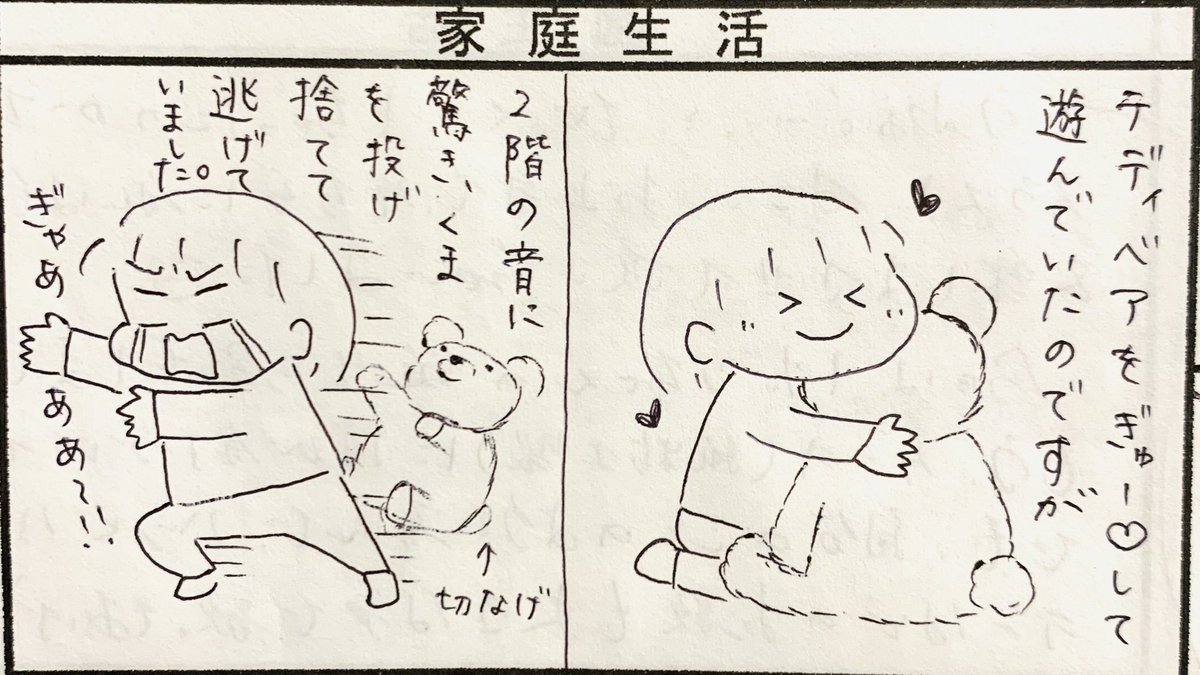 家庭生活
テディベアをぎゅー♡して
遊んでいたのですが
2階の音に
驚き、くま
を投げ
捨てて
逃げて
いました。
ぎゃあ
ああ〜!!
↑
切なげ